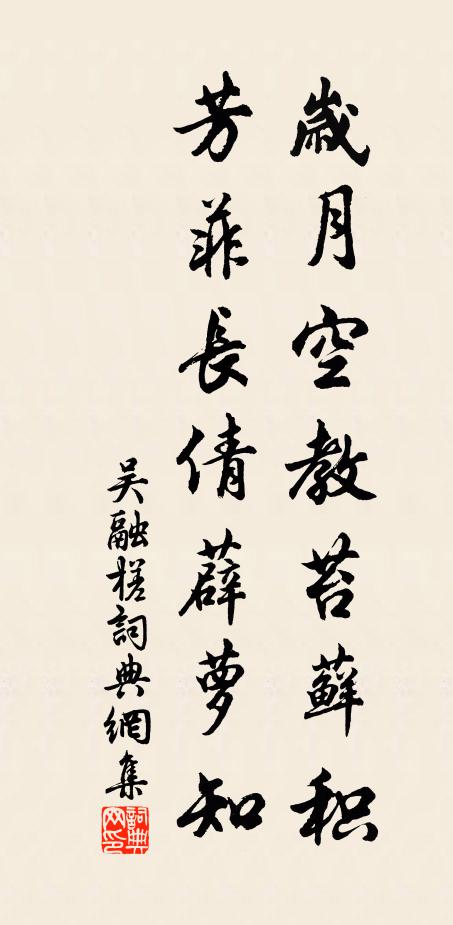 歲月空教苔蘚积
芳菲長倩薜萝知
吴融槎詞典網集
詞典网印